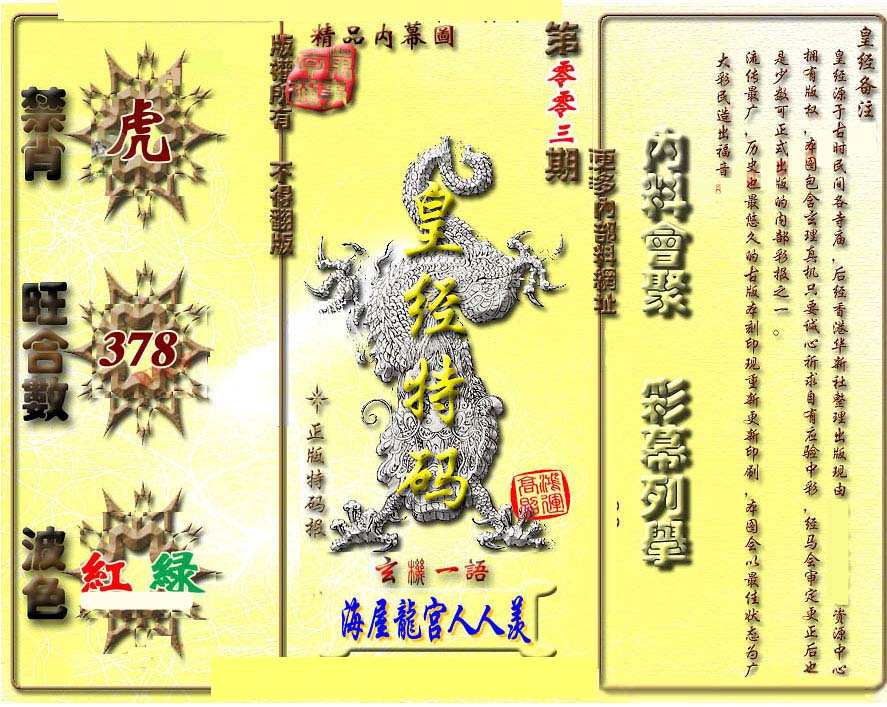 禁肖
虎
旺合數
378
波色
紅 綠
版權所有 不得翻版
精品内幕圖
第零零三期
皇经特码
正版特码报
鴻運高照
玄機一語
海屋龍宫人人羡
更多内部料網址
内料會聚 彩幕列學
皇经备注
皇经源于古时民间各寺庙,后经香港华新社整理出版现由 资源中心
拥有版权,本图包含玄理真机只要诚心祈求自有应验中彩,经马会审定更正后也
是少数可正式出版的内部彩报之一。
流传最广,历史也最悠久的古版本刻印现重新更新印刷,本图会以最佳状态为广
大彩民造出福音